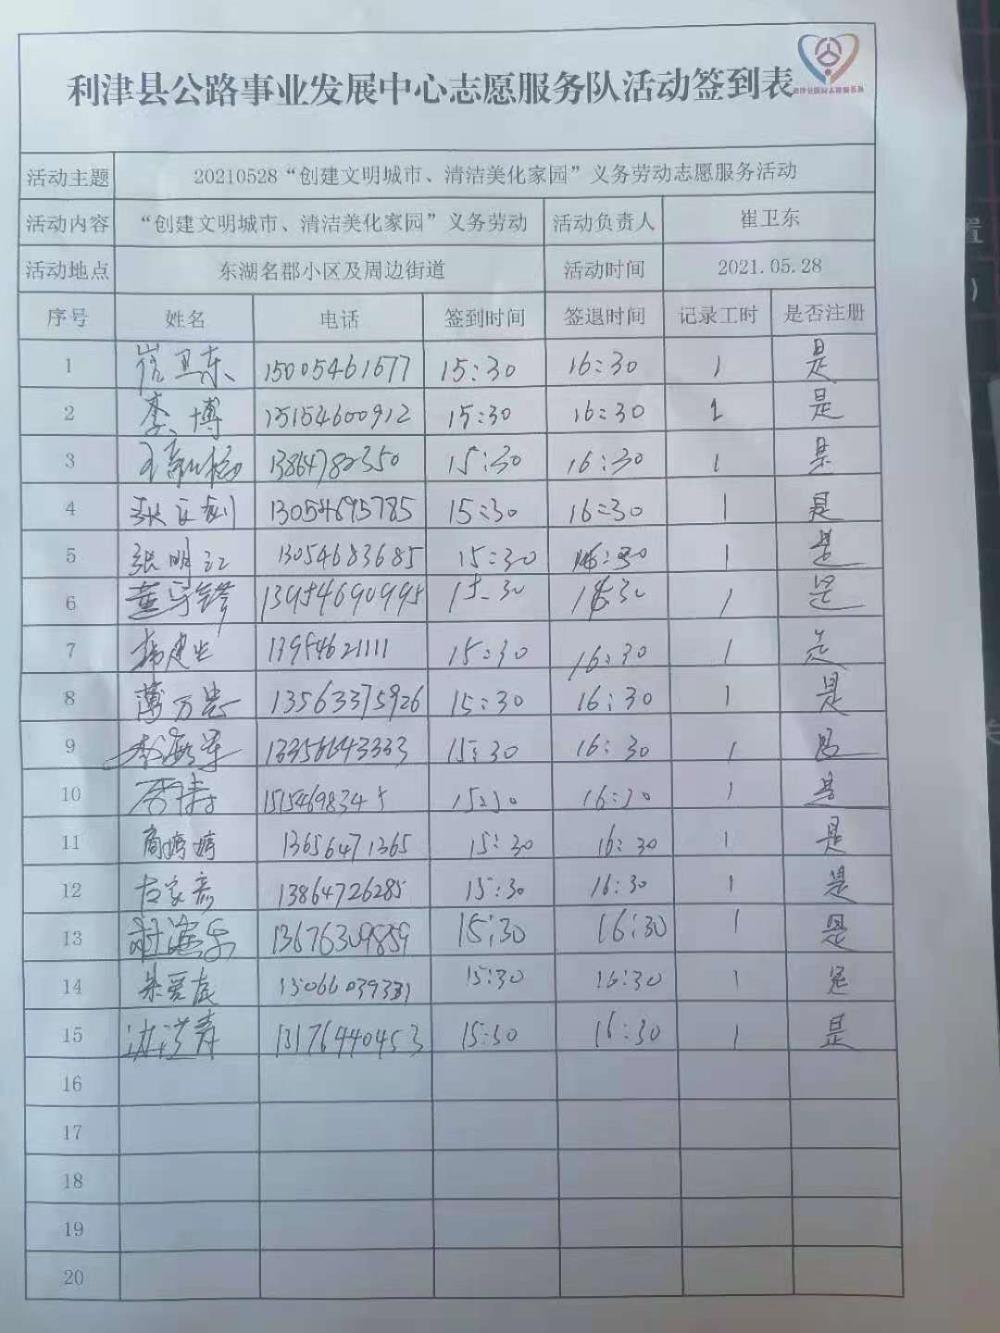 利津县公路事业发展中心志愿服务队活动签到表
活动主题 20210528“创建文明城市、清洁美化家园”义务劳动志愿服务活动
活动内容 “创建文明城市、清洁美化家园”义务劳动 活动负责人 崔卫东
活动地点 东湖名郡小区及周边街道 活动时间 2021.05.28
序号 姓名 电话 签到时间 签退时间 记录工时 是否注册
1 崔卫东 15005461677 15:30 16:30 1 是
2 李博 15154600912 15:30 16:30 1 是
3 13864782350 15:30 16:30 1 是
4 13054695785 15:30 16:30 1 是
5 张明江 13054683685 15:30 16:30 1 是
6 13954690995 15:30 16:30 1 是
7 杨建生 13954621111 15:30 16:30 1 是
8 薄万忠 13563375926 15:30 16:30 1 是
9 李海军 13356643333 15:30 16:30 1 是
10 15:30 16:30 1 是
11 商婷婷 13656471365 15:30 16:30 1 是
12 古家彦 13864726285 15:30 16:30 1 是
13 13676309859 15:30 16:30 1 是
14 15066039331 15:30 16:30 1 是
15 13176440453 15:30 16:30 1 是
16
17
18
19
20